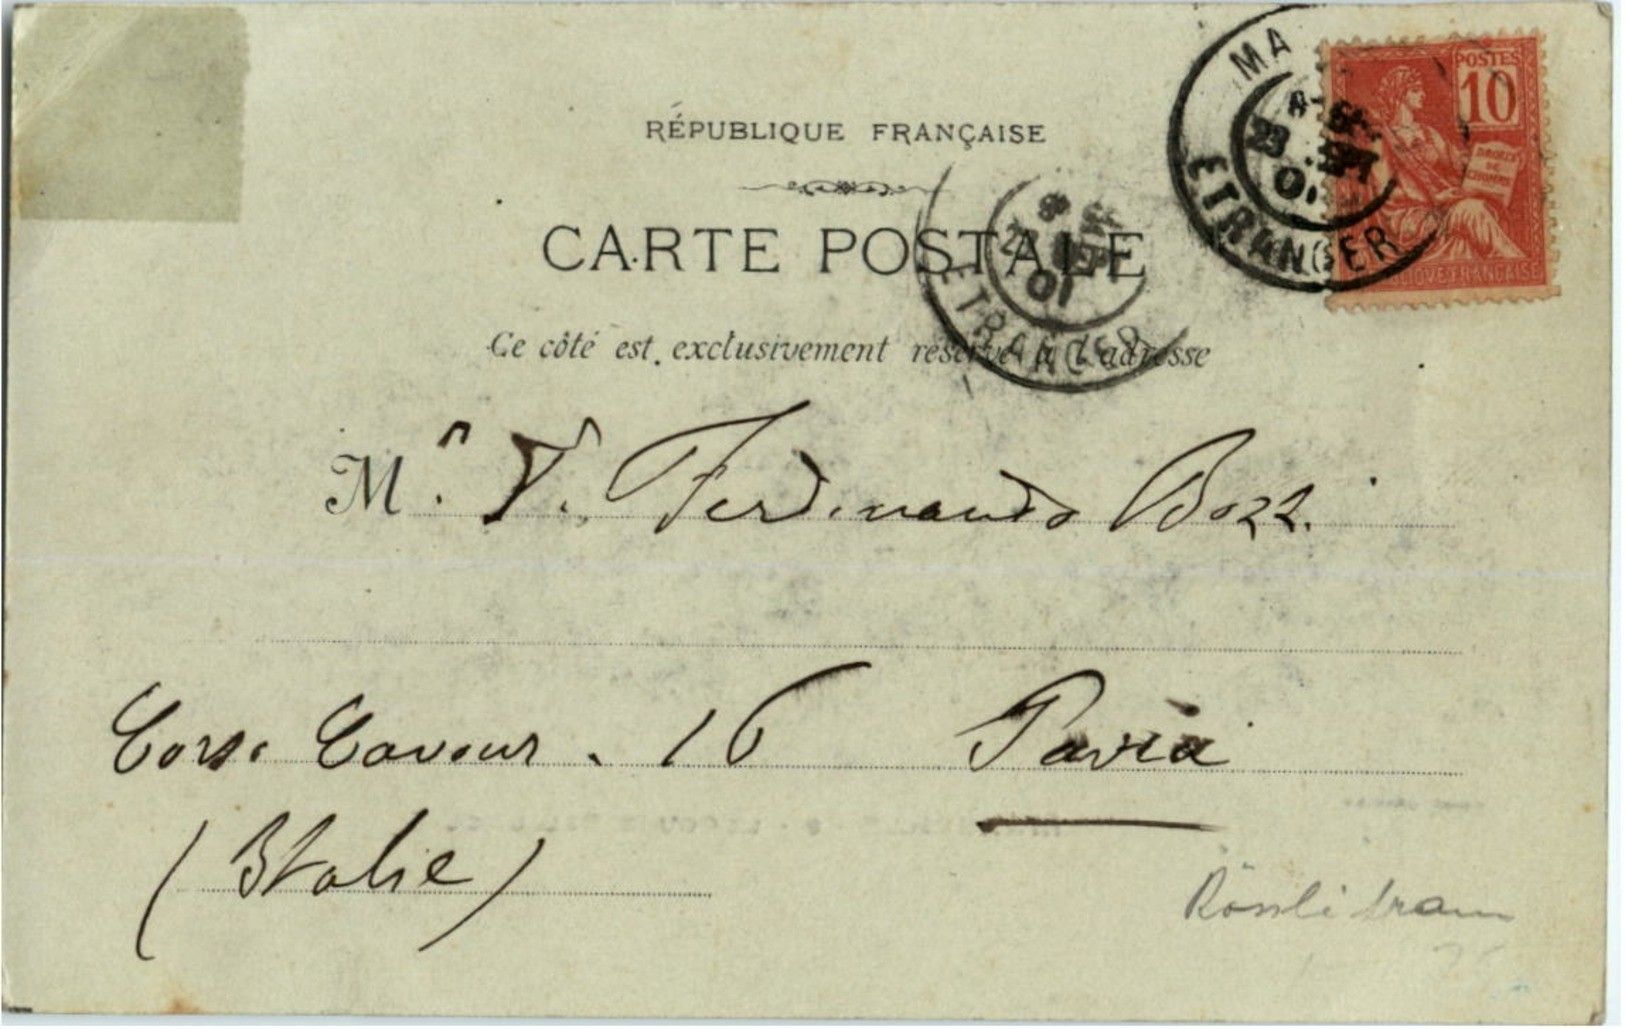 RÉPUBLIQUE FRANÇAISE
CARTE POSTALE
Ce côté est exclusivement réservé à l'adresse
POSTES
10
DROITS
DE
L'HOMME
FRANÇAISE
MA
23 SEPT
01
ETRANGER
SEPT
01
ETRANGER
Mr. V. Ferdinando Bozzi
Corso Cavour. 16 Pavia
(Italie)
Rössli tram